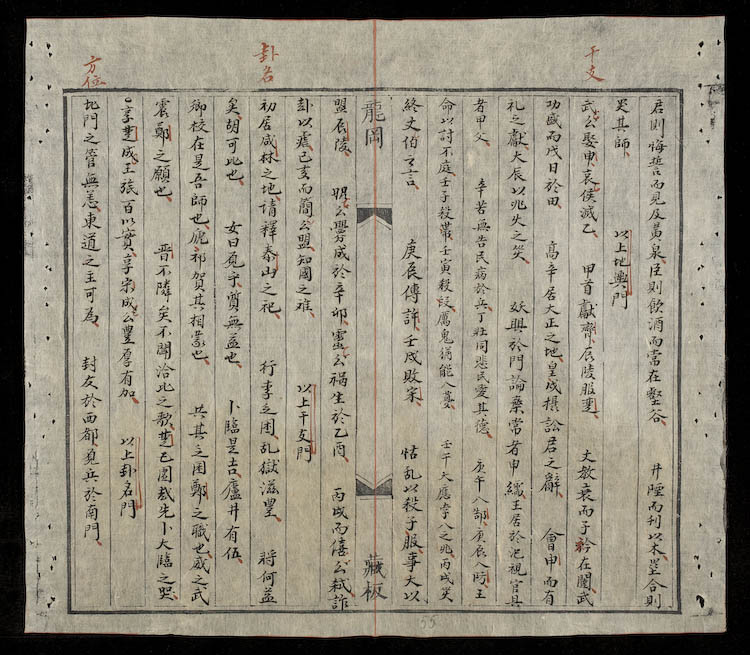 干支
君則悔誓而見及黃泉臣則飲酒而當在壑谷 井陘而刊以木堂合則
災其師 以上地輿門
武公娶申哀侯滅乙 甲首獻齊辰陵服楚 丈教衰而子衿在闕武
功盛而戊日於田 高辛居大正之地皇戌摂訟君之辭 會申而有
礼之獻大辰以兆火之災 妖興於門論藥常者申 繻王居於汜視官具
者甲父 辛苦無告民病於兵丁壯同悲民愛其德 庚午入郜庚辰入防王
命以討不庭壬子殺帶壬寅殺段厲鬼猶能入夢 壬午大應宰八之兆丙戌災
終丈伯之言 庚辰傳許壬戌敗宋 怙乱以殺子服事大以
龍岡 藏板
盟辰陵 公甍成於辛卯靈公禍生於乙酉 丙戌而僖公弒詐
卦名
卦以虐己亥而簡公盟知國之难 以上干支門
初居咸林之地請釋泰山之祀 行李之困乱獄滋豐 將何益
矣胡可比也 女曰孚質無益也 卜臨是吉廬井有伍
御校在是吾師也虒祁賀其相蒙也 共其之困鄭之職也威之武
震鄭之願也 晋不隣矣不聞洽比之教楚已國哉先卜大臨之哭
方位
享楚成王張百以實享宋成公豐厚有加 以上卦名門
北門之管無恙東道之主可為 封友於西都見兵於南門
55